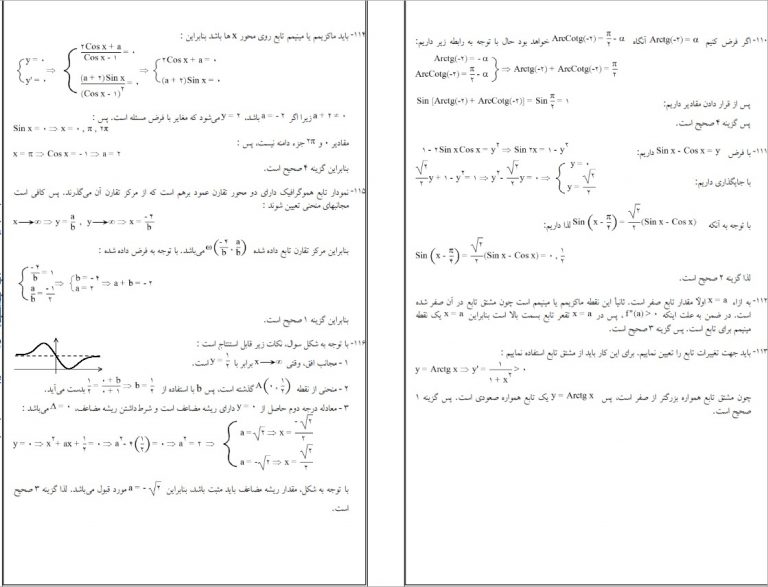 ۱۱۰- اگر فرض کنیم Arctg(-۲) = α آنگاه ArcCotg(-۲) = π/۲ - α خواهد بود حال با توجه به رابطه زیر داریم:
Arctg(-۲) = - α
ArcCotg(-۲) = π/۲ - α } ⇒ Arctg(-۲) + ArcCotg(-۲) = π/۲
پس از قرار دادن مقادیر داریم: Sin [Arctg(-۲) + ArcCotg(-۲)] = Sin π/۲ = ۱
پس گزینه ۴ صحیح است.
۱۱۱- با فرض Sin x - Cos x = y داریم: ۱ - ۲ Sin x Cos x = y² ⇒ Sin ۲x = ۱ - y²
با جایگذاری داریم: √۲/۲ y + ۱ - y² = ۱ ⇒ y² - √۲/۲ y = ۰ ⇒ { y = ۰
y = √۲/۲
با توجه به آنکه Sin (x - π/۴) = √۲/۲ (Sin x - Cos x) لذا داریم:
Sin (x - π/۴) = √۲/۲ (Sin x - Cos x) = ۰ , ۱/۲
لذا گزینه ۲ صحیح است.
۱۱۲- به ازاء x = a اولاً مقدار تابع صفر است. ثانیاً این نقطه ماکزیمم یا مینیمم است چون مشتق تابع در آن صفر شده
است. در ضمن به علت اینکه f''(a) > ۰ ، پس در x = a تقعر تابع بسمت بالا است بنابراین x = a یک نقطه
مینیمم برای تابع است. پس گزینه ۳ صحیح است.
۱۱۳- باید جهت تغییرات تابع را تعیین نماییم. برای این کار باید از مشتق تابع استفاده نماییم :
y = Arctg x ⇒ y' = ۱/(۱ + x²) > ۰
چون مشتق تابع همواره بزرگتر از صفر است، پس y = Arctg x یک تابع همواره صعودی است. پس گزینه ۱
صحیح است.
۱۱۴- باید ماکزیمم یا مینیمم تابع روی محور x ها باشد بنابراین :
{ y = ۰
y' = ۰ ⇒ { (۲Cos x + a)/(Cos x - ۱) = ۰
((a + ۲)Sin x)/(Cos x - ۱)² = ۰ ⇒ { ۲Cos x + a = ۰
(a + ۲)Sin x = ۰
a + ۲ ≠ ۰ زیرا اگر a = - ۲ باشد، y = ۲ می‌شود که مغایر با فرض مسئله است. پس :
Sin x = ۰ ⇒ x = ۰ , π , ۲π
مقادیر ۰ و ۲π جزء دامنه نیست، پس :
x = π ⇒ Cos x = - ۱ ⇒ a = ۲
بنابراین گزینه ۴ صحیح است.
۱۱۵- نمودار تابع هموگرافیک دارای دو محور تقارن عمود برهم است که از مرکز تقارن آن می‌گذرند. پس کافی است
مجانبهای منحنی تعیین شوند :
x → ∞ ⇒ y = a/b , y → ∞ ⇒ x = -۴/b
بنابراین مرکز تقارن تابع داده شده ω(-۴/b , a/b) می‌باشد. با توجه به فرض داده شده :
{ -۴/b = ۱
a/b = -۱/۲ ⇒ { b = - ۴
a = ۲ ⇒ a + b = - ۲
بنابراین گزینه ۱ صحیح است.
۱۱۶- با توجه به شکل سوال، نکات زیر قابل استنتاج است :
۱ - مجانب افق، وقتی x → ∞ برابر با y = ۱/۲ است.
۲ - منحنی از نقطه A(۰ , ۱/۲) گذشته است، پس b با استفاده از ۱/۲ = (۰ + b)/(۰ + ۱) ⇒ b = ۱/۲ بدست می‌آید.
۳ - معادله درجه دوم حاصل از y = ۰ دارای ریشه مضاعف است و شرط داشتن ریشه مضاعف، Δ = ۰ می‌باشد :
y = ۰ ⇒ x² + ax + ۱/۲ = ۰ ⇒ a² - ۴(۱/۲) = ۰ ⇒ a² = ۲ ⇒ { a = √۲ ⇒ x = -√۲/۲
a = -√۲ ⇒ x = √۲/۲
با توجه به شکل، مقدار ریشه مضاعف باید مثبت باشد، بنابراین a = - √۲ مورد قبول می‌باشد. لذا گزینه ۳ صحیح
است.